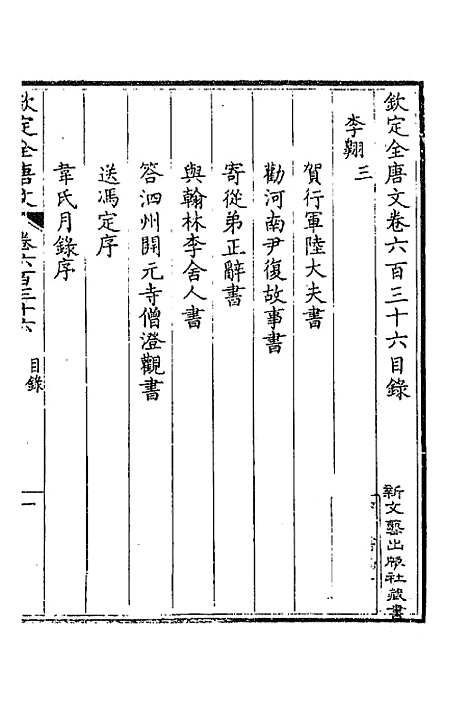 欽定全唐文卷六百三十六目錄
李翺三
賀行軍陸大夫書
勸河南尹復故事書
寄從弟正辭書
與翰林李舍人書
答泗州開元寺僧澄觀書
送馮定序
韋氏月錄序
欽定全唐文 卷六百三十六 目錄 一
新文藝出版社藏書